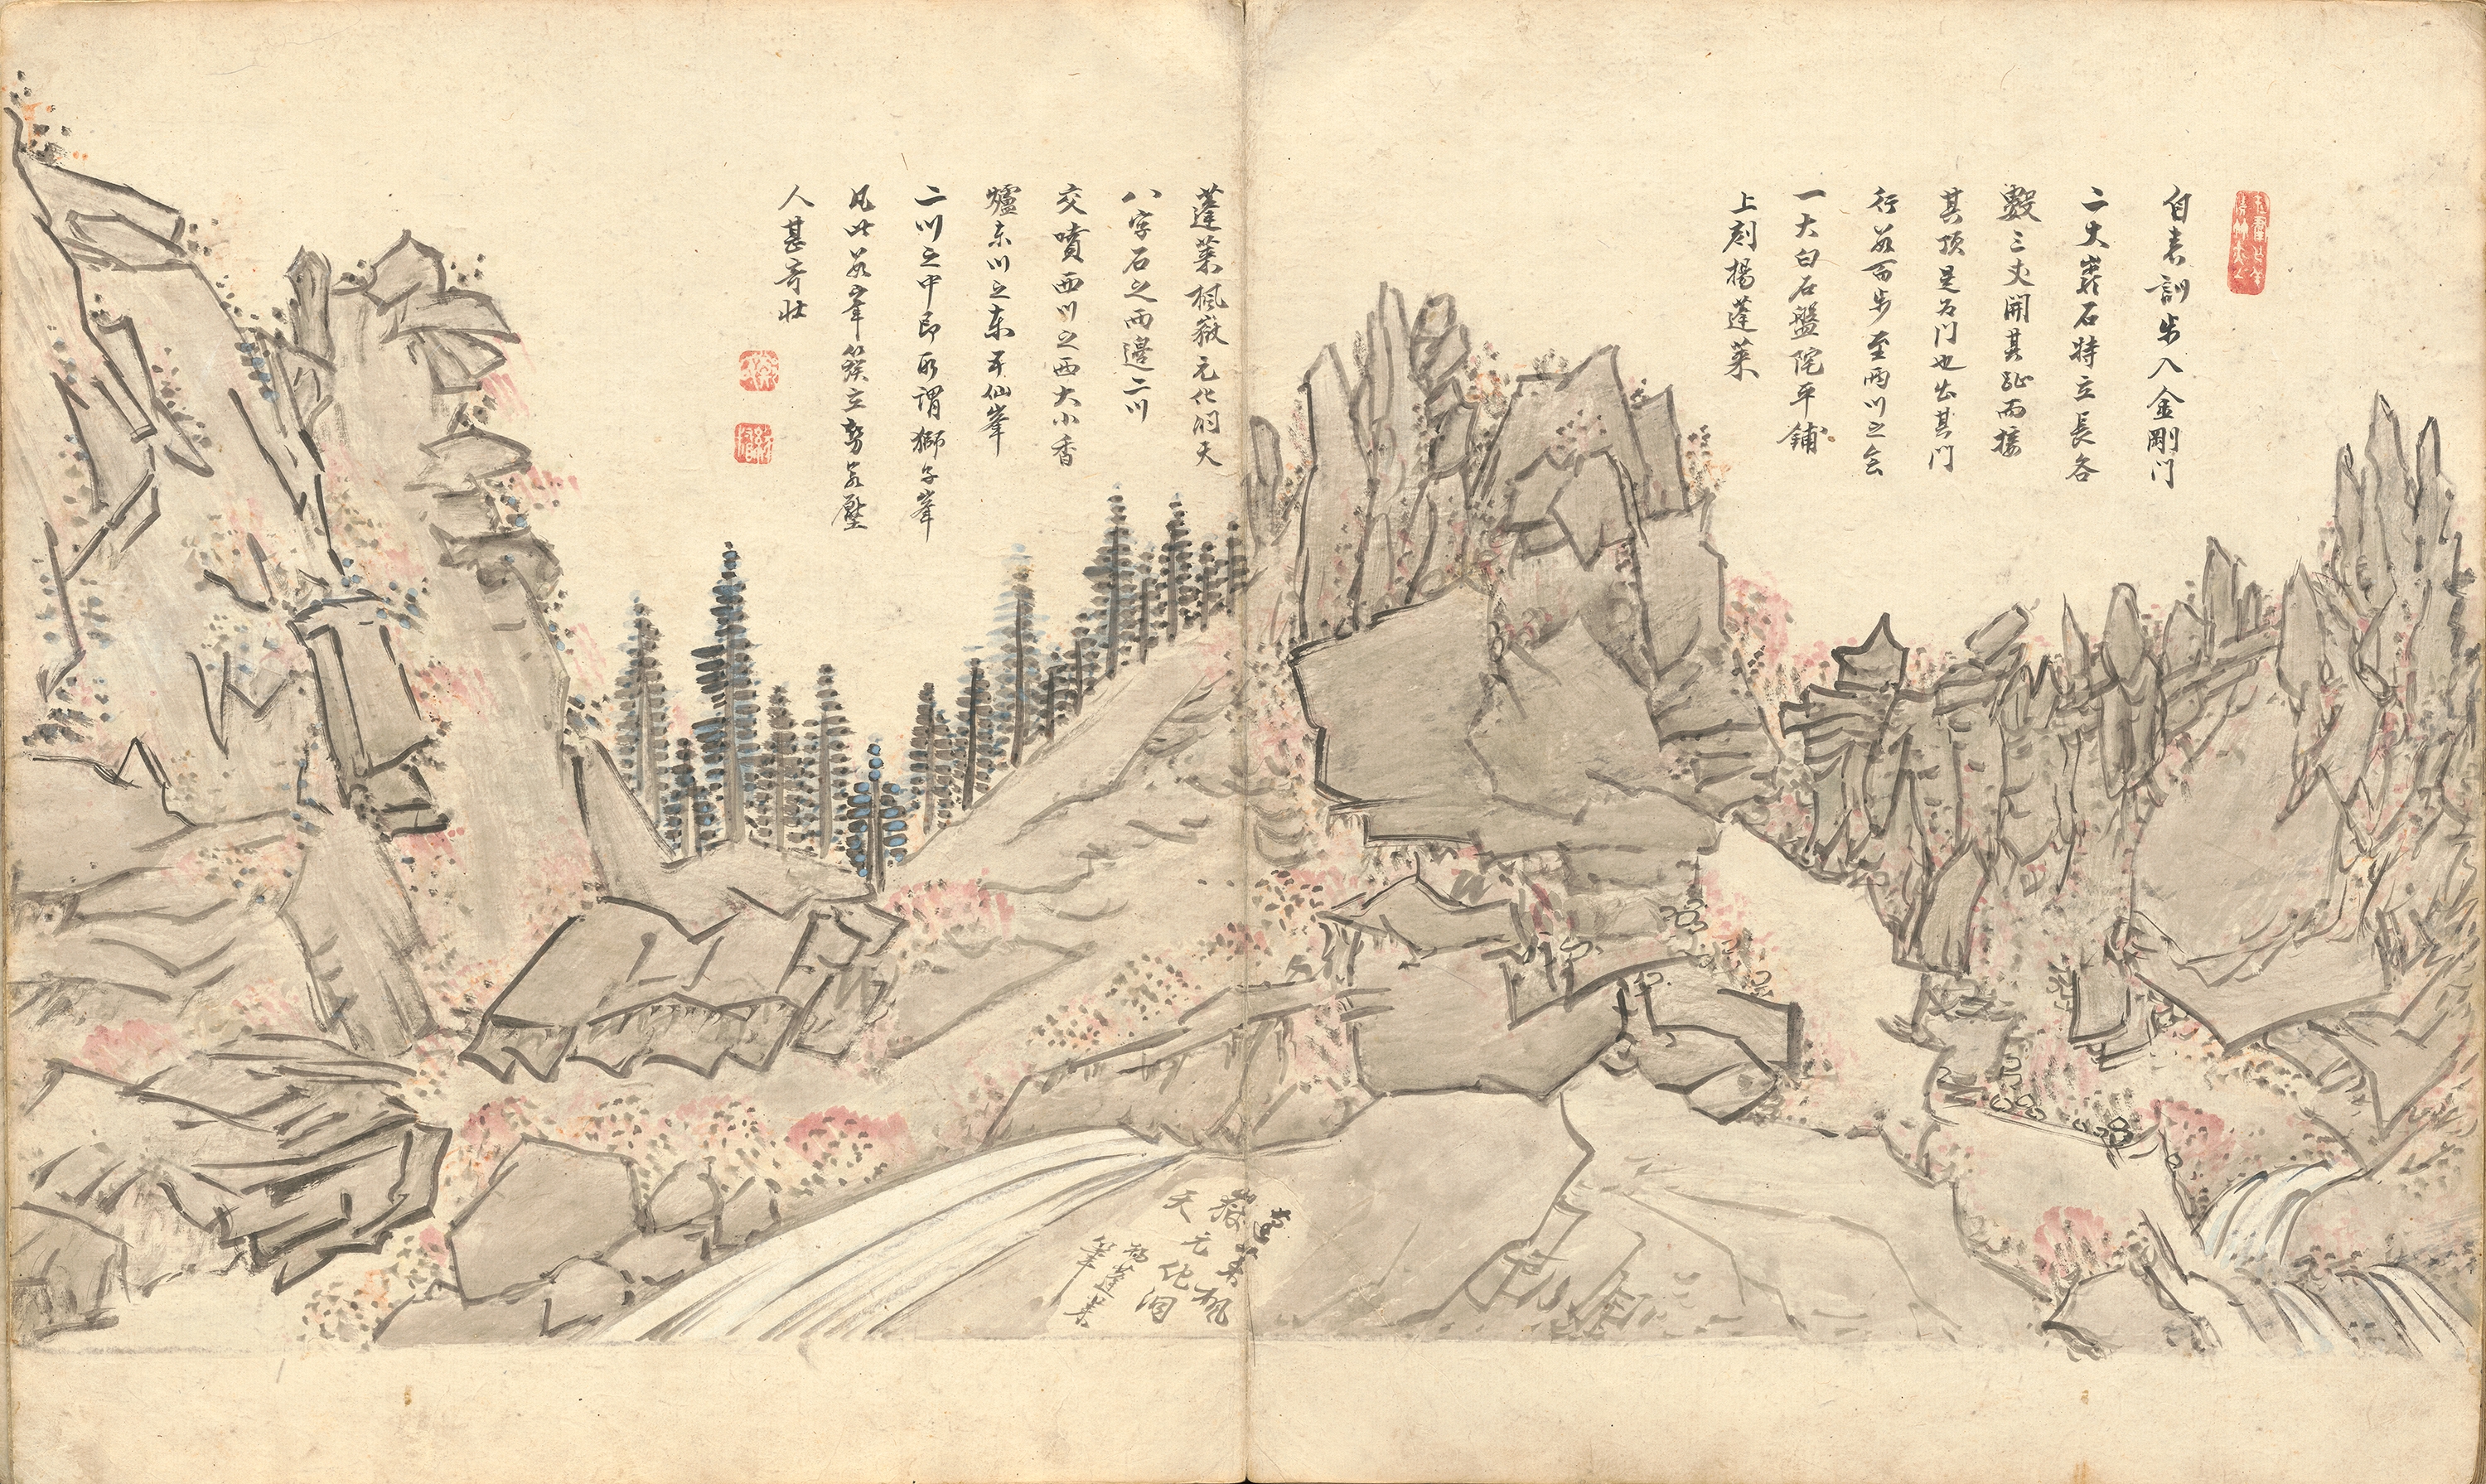 自表訓步入金剛门
二大巖石特立長各
數三丈開其趾而接
其頂是为门也出其门
行數百步至兩川之会
一大白石盤陀平鋪
上刻楊蓬萊
蓬萊楓嶽元化洞天
八字石之兩邊二川
交噴西川之西大小香
爐東川之東仙峯
二川之中即所謂獅子峯
凡此數峯簇立勢若壓
人甚奇壯
蓬萊楓
嶽元化洞
天
楊蓬萊
筆